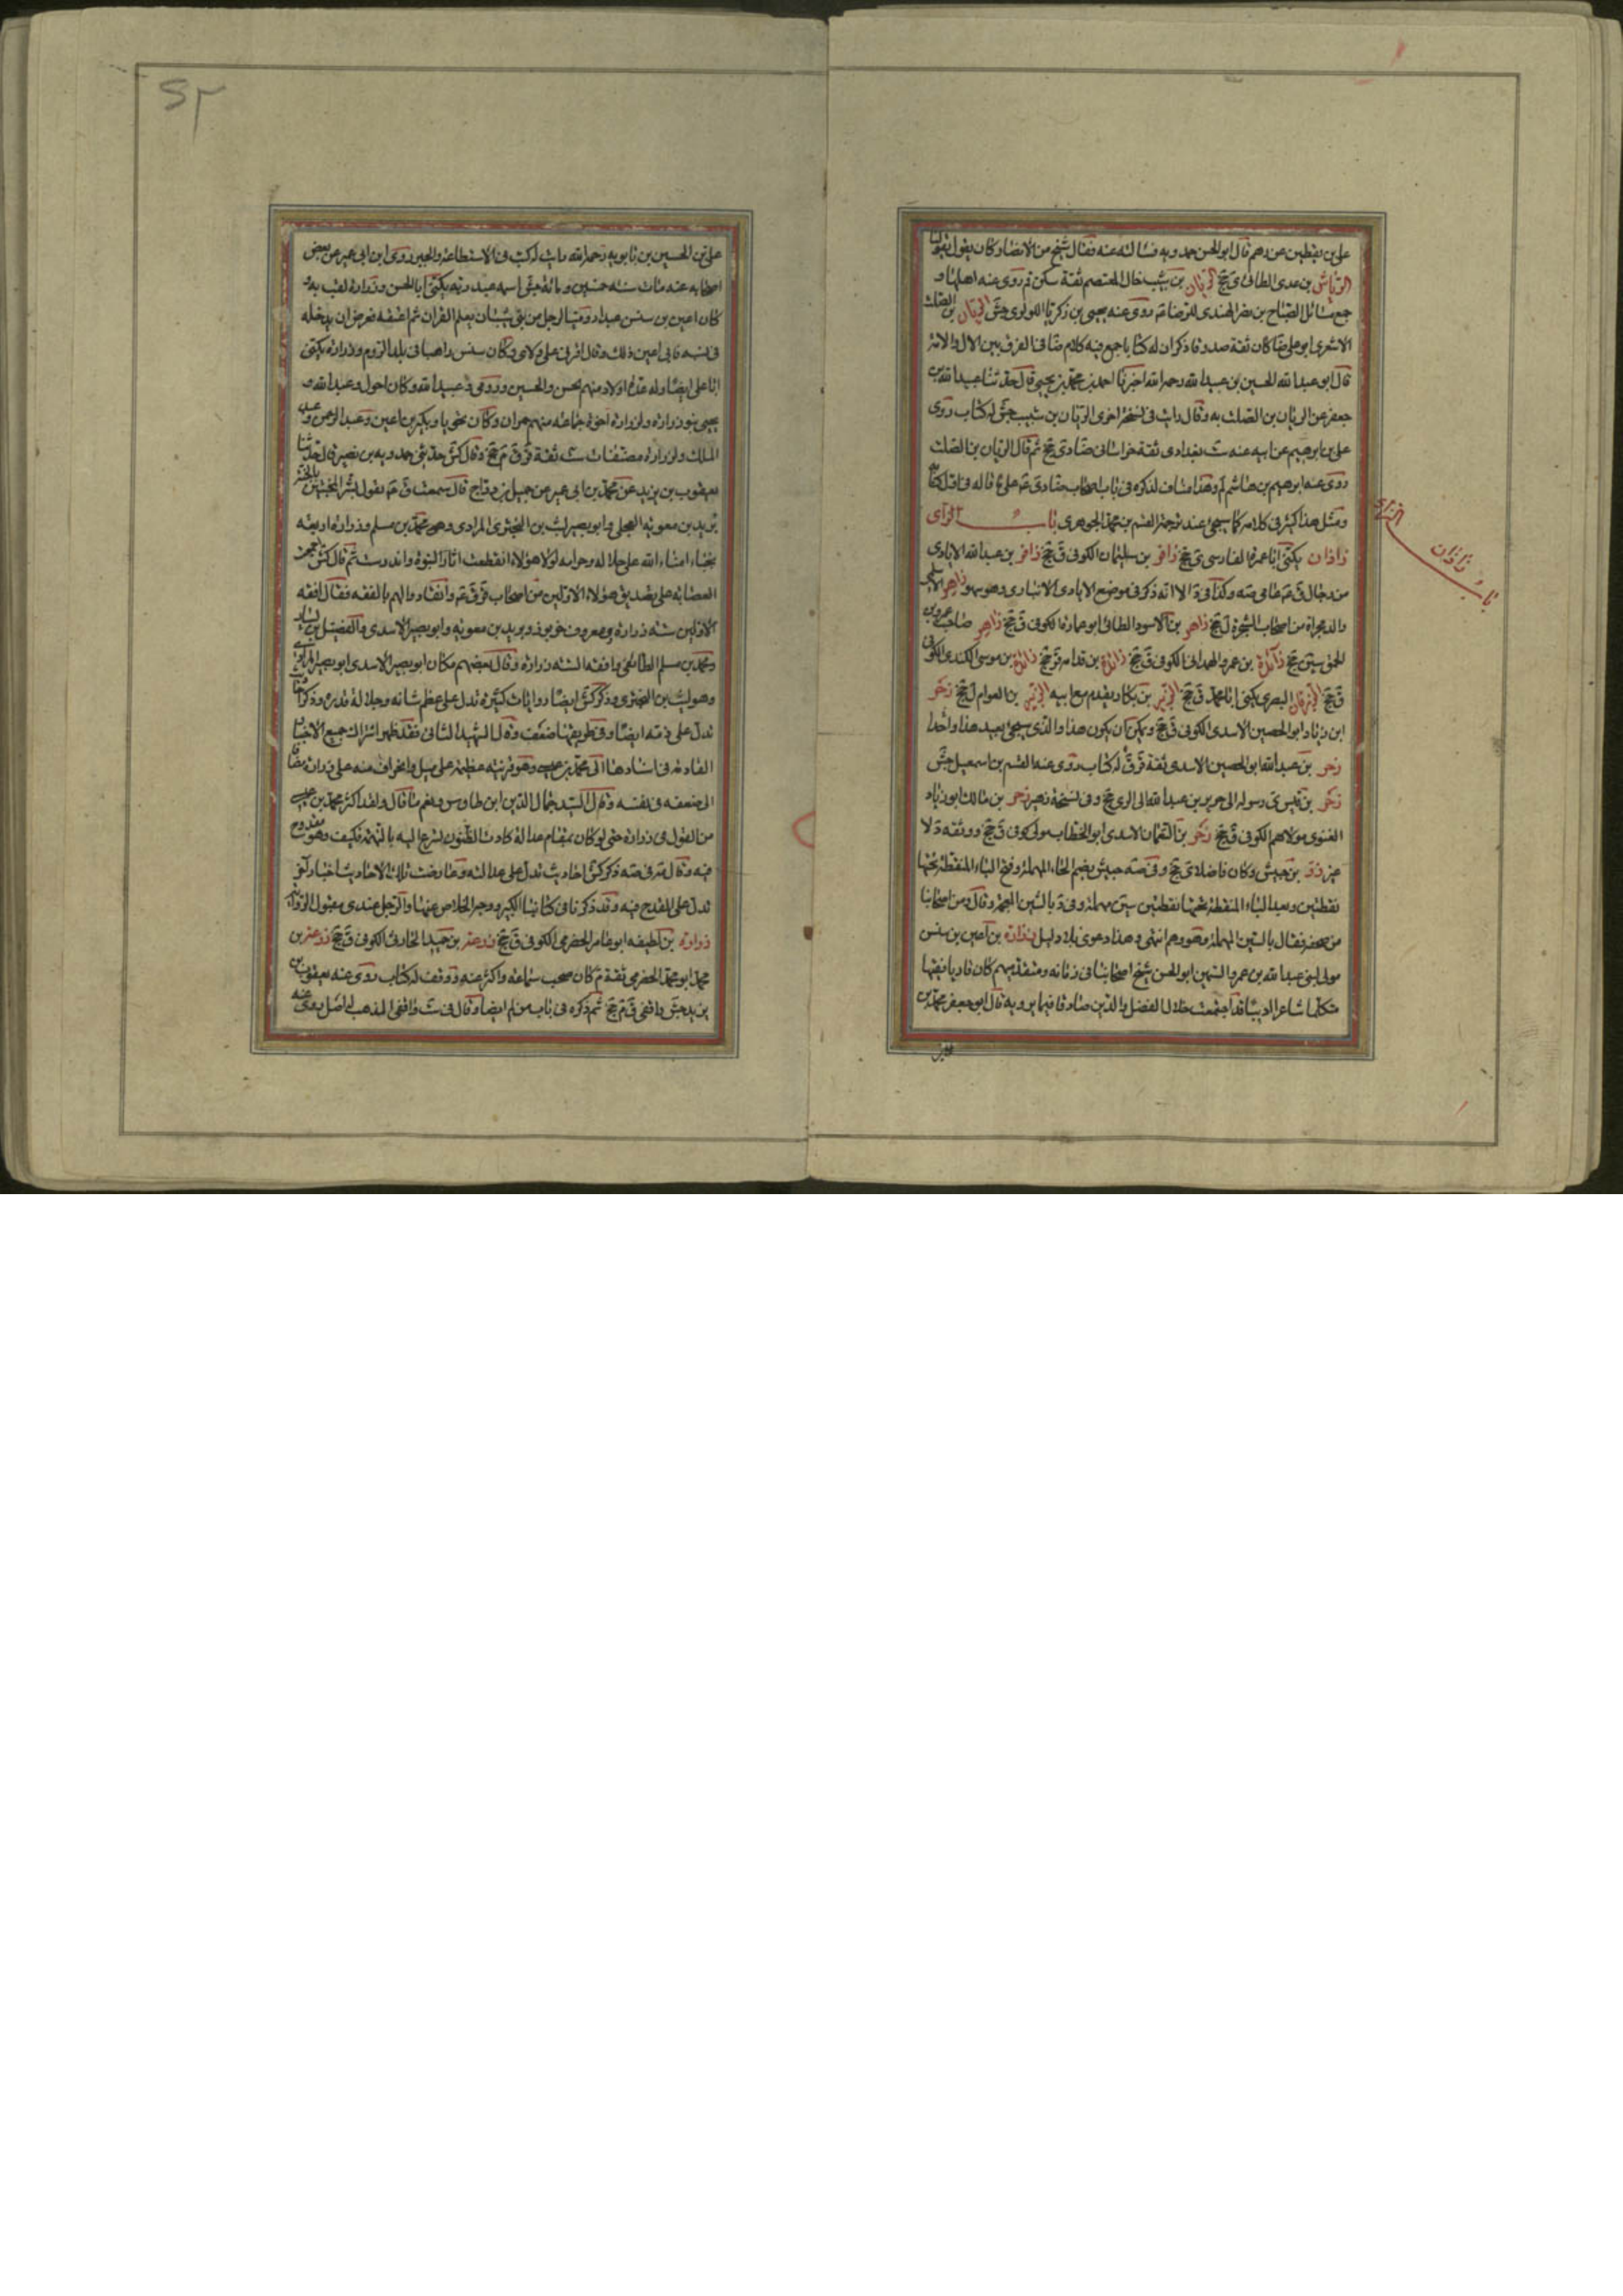 علی بن یقطین عن رهم قال ابو الحسن حمدویه فسالته عنه فقال شیخ من الانصار و کان یقول بقولنا
الریاش بن عدی الطائی ق جخ الریان بن شبیب خال المعتصم ثقة سکن قم روی عنه اهلها و
جمع مسائل الصباح بن نصر الهندی للرضا عه روی عنه یحیی بن زکریا اللولوی جش الریان بن الصلت
الاشعری ابو علی ضا کان ثقة صدوقا ذکر ان له کتابا جمع فیه کلام ضا فی الفرق بین الال والامة
قال ابو عبد الله الحسین بن عبید الله رحمه الله اخبرنا احمد بن محمد بن یحیی قال حدثنا عبد الله بن
جعفر عن الریان بن الصلت به و قال رایت فی نسخة اخری الریان بن شبیب جش له کتاب روی
علی بن ابرهیم عن ابیه عنه ست بغدادی ثقة خراسانی ضا دی جخ ثم قال الریان بن الصلت
روی عنه ابرهیم بن هاشم لم و هذا مناف لذکره فی باب اصحاب ضا دی عه علی ما قاله فی اول کتابه
و مثل هذا کثیر فی کلامه کما سیجی عند ترجمة القسم بن محمد الجوهری باب الزای
زاذان یکنی ابا عمرة الفارسی ی جخ زافر بن سلیمان الکوفی ق جخ زافر بن عبد الله الایادی
من رجال ق عه ما فی صه و کذا فی د الا انه ذکر فی موضع الایادی الانباری و هو سهو زاهر الاسلمی
والد مجزاة من اصحاب الشجرة ل جخ زاهر بن الاسود الطائی ابو عمارة الکوفی ق جخ زاهر صاحب عمرو بن
الحمق سین جخ زائدة بن عمرو الهمدانی الکوفی ق جخ زائدة بن قدامه قر جخ زائدة بن موسی الکندی الکوفی
ق جخ الزبرقان البصری یکنی ابا محمد ق جخ الزبیر بن بکار یقدم مع ابیه الزبیر بن العوام ل جخ زحر
ابن زیاد ابو الحصین الاسدی الکوفی ق جخ و یمکن ان یکون هذا والذی سیجی بعید هذا واحدا
زحر بن عبد الله ابو الحصین الاسدی ثقة قر ق له کتاب روی عنه القسم بن اسمعیل جش
زحر بن قیس ی رسوله الی جریر بن عبد الله الی الری جخ و فی نسخة زهیر زحر بن مالک ابو زیاد
الغنوی مولاهم الکوفی ق جخ زحر بن النعمان الاسدی ابو الخطاب مولی کوفی ق جخ و وثقه د لا
غیر زر بن حبیش و کان فاضلا ی جخ و فی صه حبیش بضم الحاء المهملة و فتح الباء المنقطة تحتها
نقطتین و بعد الیاء المنقطة تحتها نقطتین سین مهملة و فی د بالشین المعجمة و قال و من اصحابنا
من صحفه فقال بالسین المهملة و هو وهم انتهی و هذا دعوی بلا دلیل زرارة بن اعین بن سنسن
مولی لبنی عبد الله بن عمرو السمین ابو الحسن شیخ اصحابنا فی زمانه و متقدمهم کان قاریا فقیها
متکلما شاعرا ادیبا قد اجتمعت خلال الفضل والدین صادقا فیما یرویه قال ابو جعفر محمد بن
باب زاذان
علی بن الحسین بن بابویه رحمه الله رایت له کتب فی الاستطاعة والجبر روی ابن ابی عمیر عن بعض
اصحابه عنه مات سنه خمسین و مائة جش اسمه عبد ربه یکنی ابا الحسن و زرارة لقب به و
کان اعین بن سنسن عبدا رومیا لرجل من بنی شیبان تعلم القران ثم اعتقه فعرض ان یدخله
فی نسبه فابی اعین ذلک و قال اقرنی علی ولائی و کان سنسن راهبا فی بلد الروم و زرارة یکنی
ابا علی ایضا و له عدة اولاد منهم الحسن والحسین و رومی و عبید الله و کان احول و عبد الله و
یحیی بنو زرارة و لزرارة اخوة جماعة منهم حمران و کان نحویا و بکیر بن اعین و عبد الرحمن و عبد
الملک و لزرارة مصنفات ست ثقة قر ق م جخ و قال کش حدثنی حمدویه بن نصیر قال حدثنا
یعقوب بن یزید عن محمد بن ابی عمیر عن جمیل بن دراج قال سمعت ق عه یقول بشر المخبتین بالجنة
برید بن معویة العجلی و ابو بصیر لیث بن البختری المرادی و محمد بن مسلم و زرارة اربعة
نجباء امناء الله علی حلاله و حرامه لولا هؤلاء انقطعت اثار النبوة واندرست ثم قال کش اجتمعت
العصابة علی تصدیق هؤلاء الاولین من اصحاب قر ق عه وانقادوا لهم بالفقه فقال افقه
الاولین سته زرارة و معروف خربوذ و برید بن معویة و ابو بصیر الاسدی والفضیل بن یسار
و محمد بن مسلم الطائفی و افقه السته زرارة و قال بعضهم مکان ابو بصیر الاسدی ابو بصیر المرادی
و هو لیث بن البختری و ذکر کش ایضا روایات کثیرة تدل علی عظم شانه و جلالة قدره و ذکر ما
تدل علی ذمه ایضا و فی طریقها ضعف و قال الشهید الثانی فقد ظهر اشتراک جمیع الاخبار
القادحة فی اسنادها الی محمد بن عیسی و هو قرینة عظیمة علی میل وانحراف منه علی زرارة مضافا
الی ضعفه فی نفسه و قال السید جمال الدین ابن طاوس و نعم ما قال و لقد اکثر محمد بن عیسی
من القول فی زرارة حتی لو کان بمقام عدالة کادت الظنون تسرع الیه بالتهمة فکیف و هو مقدوح
فیه و قال مه فی صه ذکر کش احادیث تدل علی عدالته و عارضت تلک الاحادیث اخبار اخر
تدل علی القدح فیه و قد ذکرنا فی کتابنا الکبیر وجه الخلاص عنها والرجل عندی مقبول الروایة
زرارة بن لطیفه ابو عامر الحضرمی الکوفی ق جخ زرعة بن حمید الحارثی الکوفی ق جخ زرعة بن
محمد ابو محمد الحضرمی ثقة م کان صحب سماعة و اکثر عنه و وقف له کتاب روی عنه یعقوب بن
یزید جش واقفی ق م جخ ثم ذکره فی باب من لم ایضا و قال فی ست واقفی المذهب له اصل روی عنه